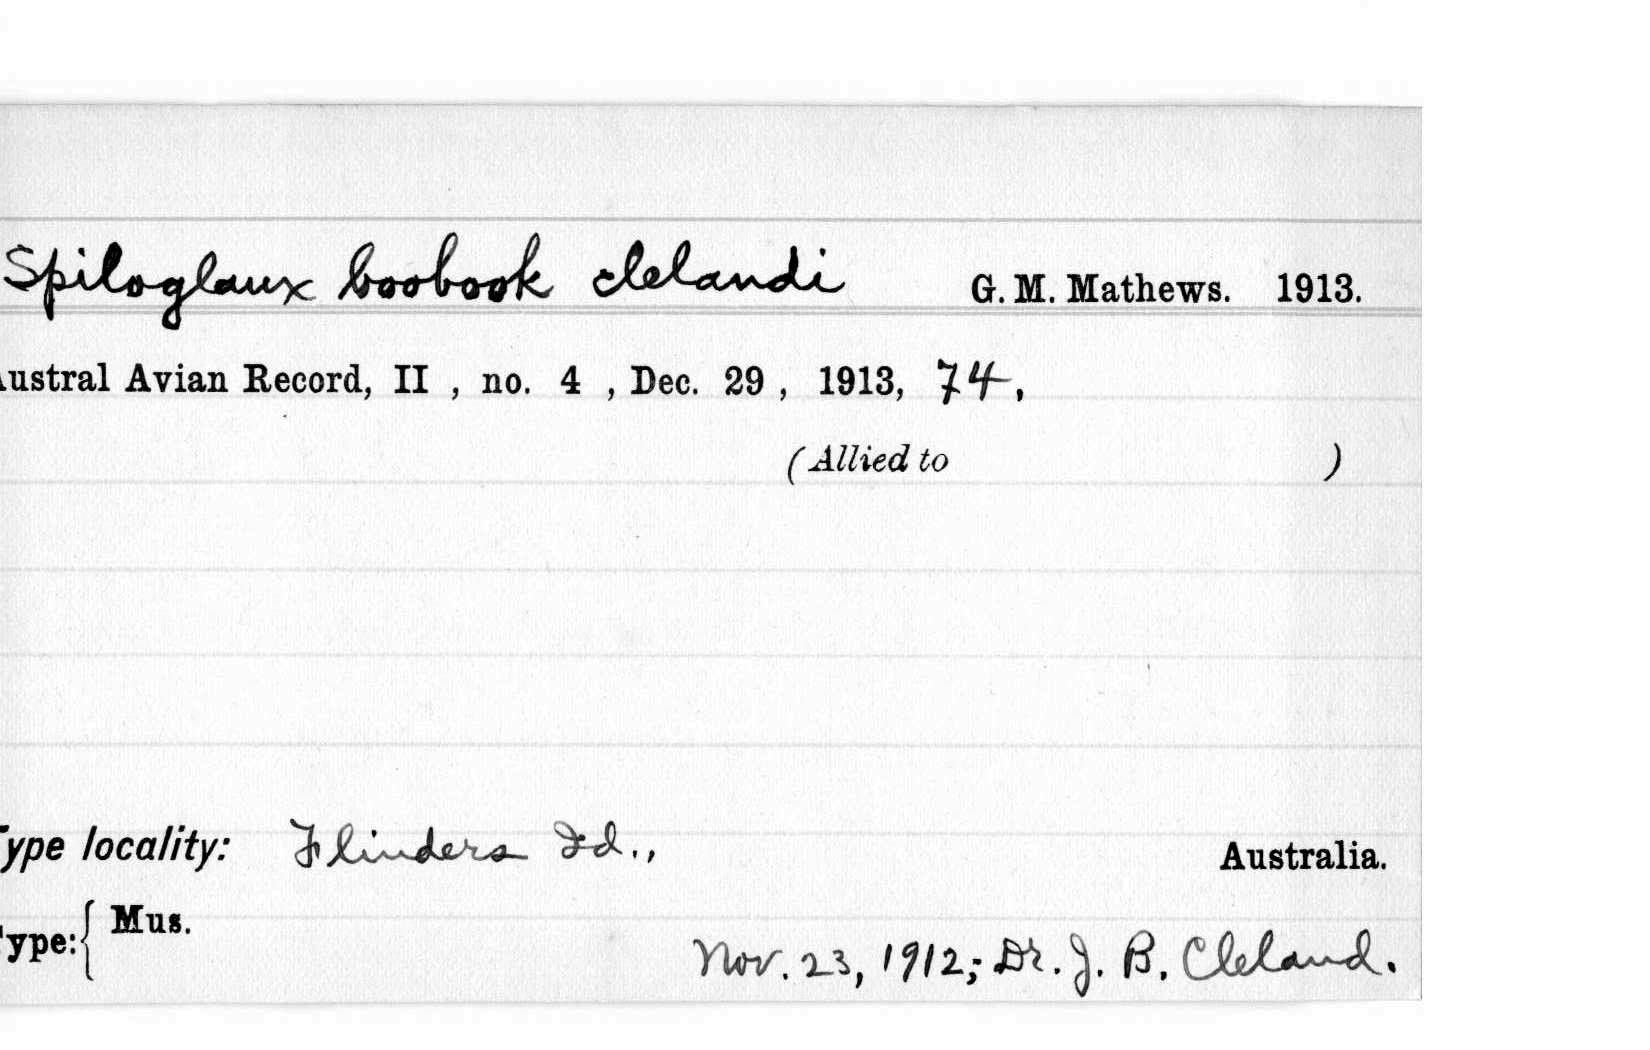 Spiloglaux boobook clelandi G. M. Mathews. 1913.
ustral Avian Record, II , no. 4 , Dec. 29 , 1913, 74,
(Allied to )
ype locality: Flinders Id., Australia.
ype: { Mus.
Nov. 23, 1912; Dr. J. B. Cleland.